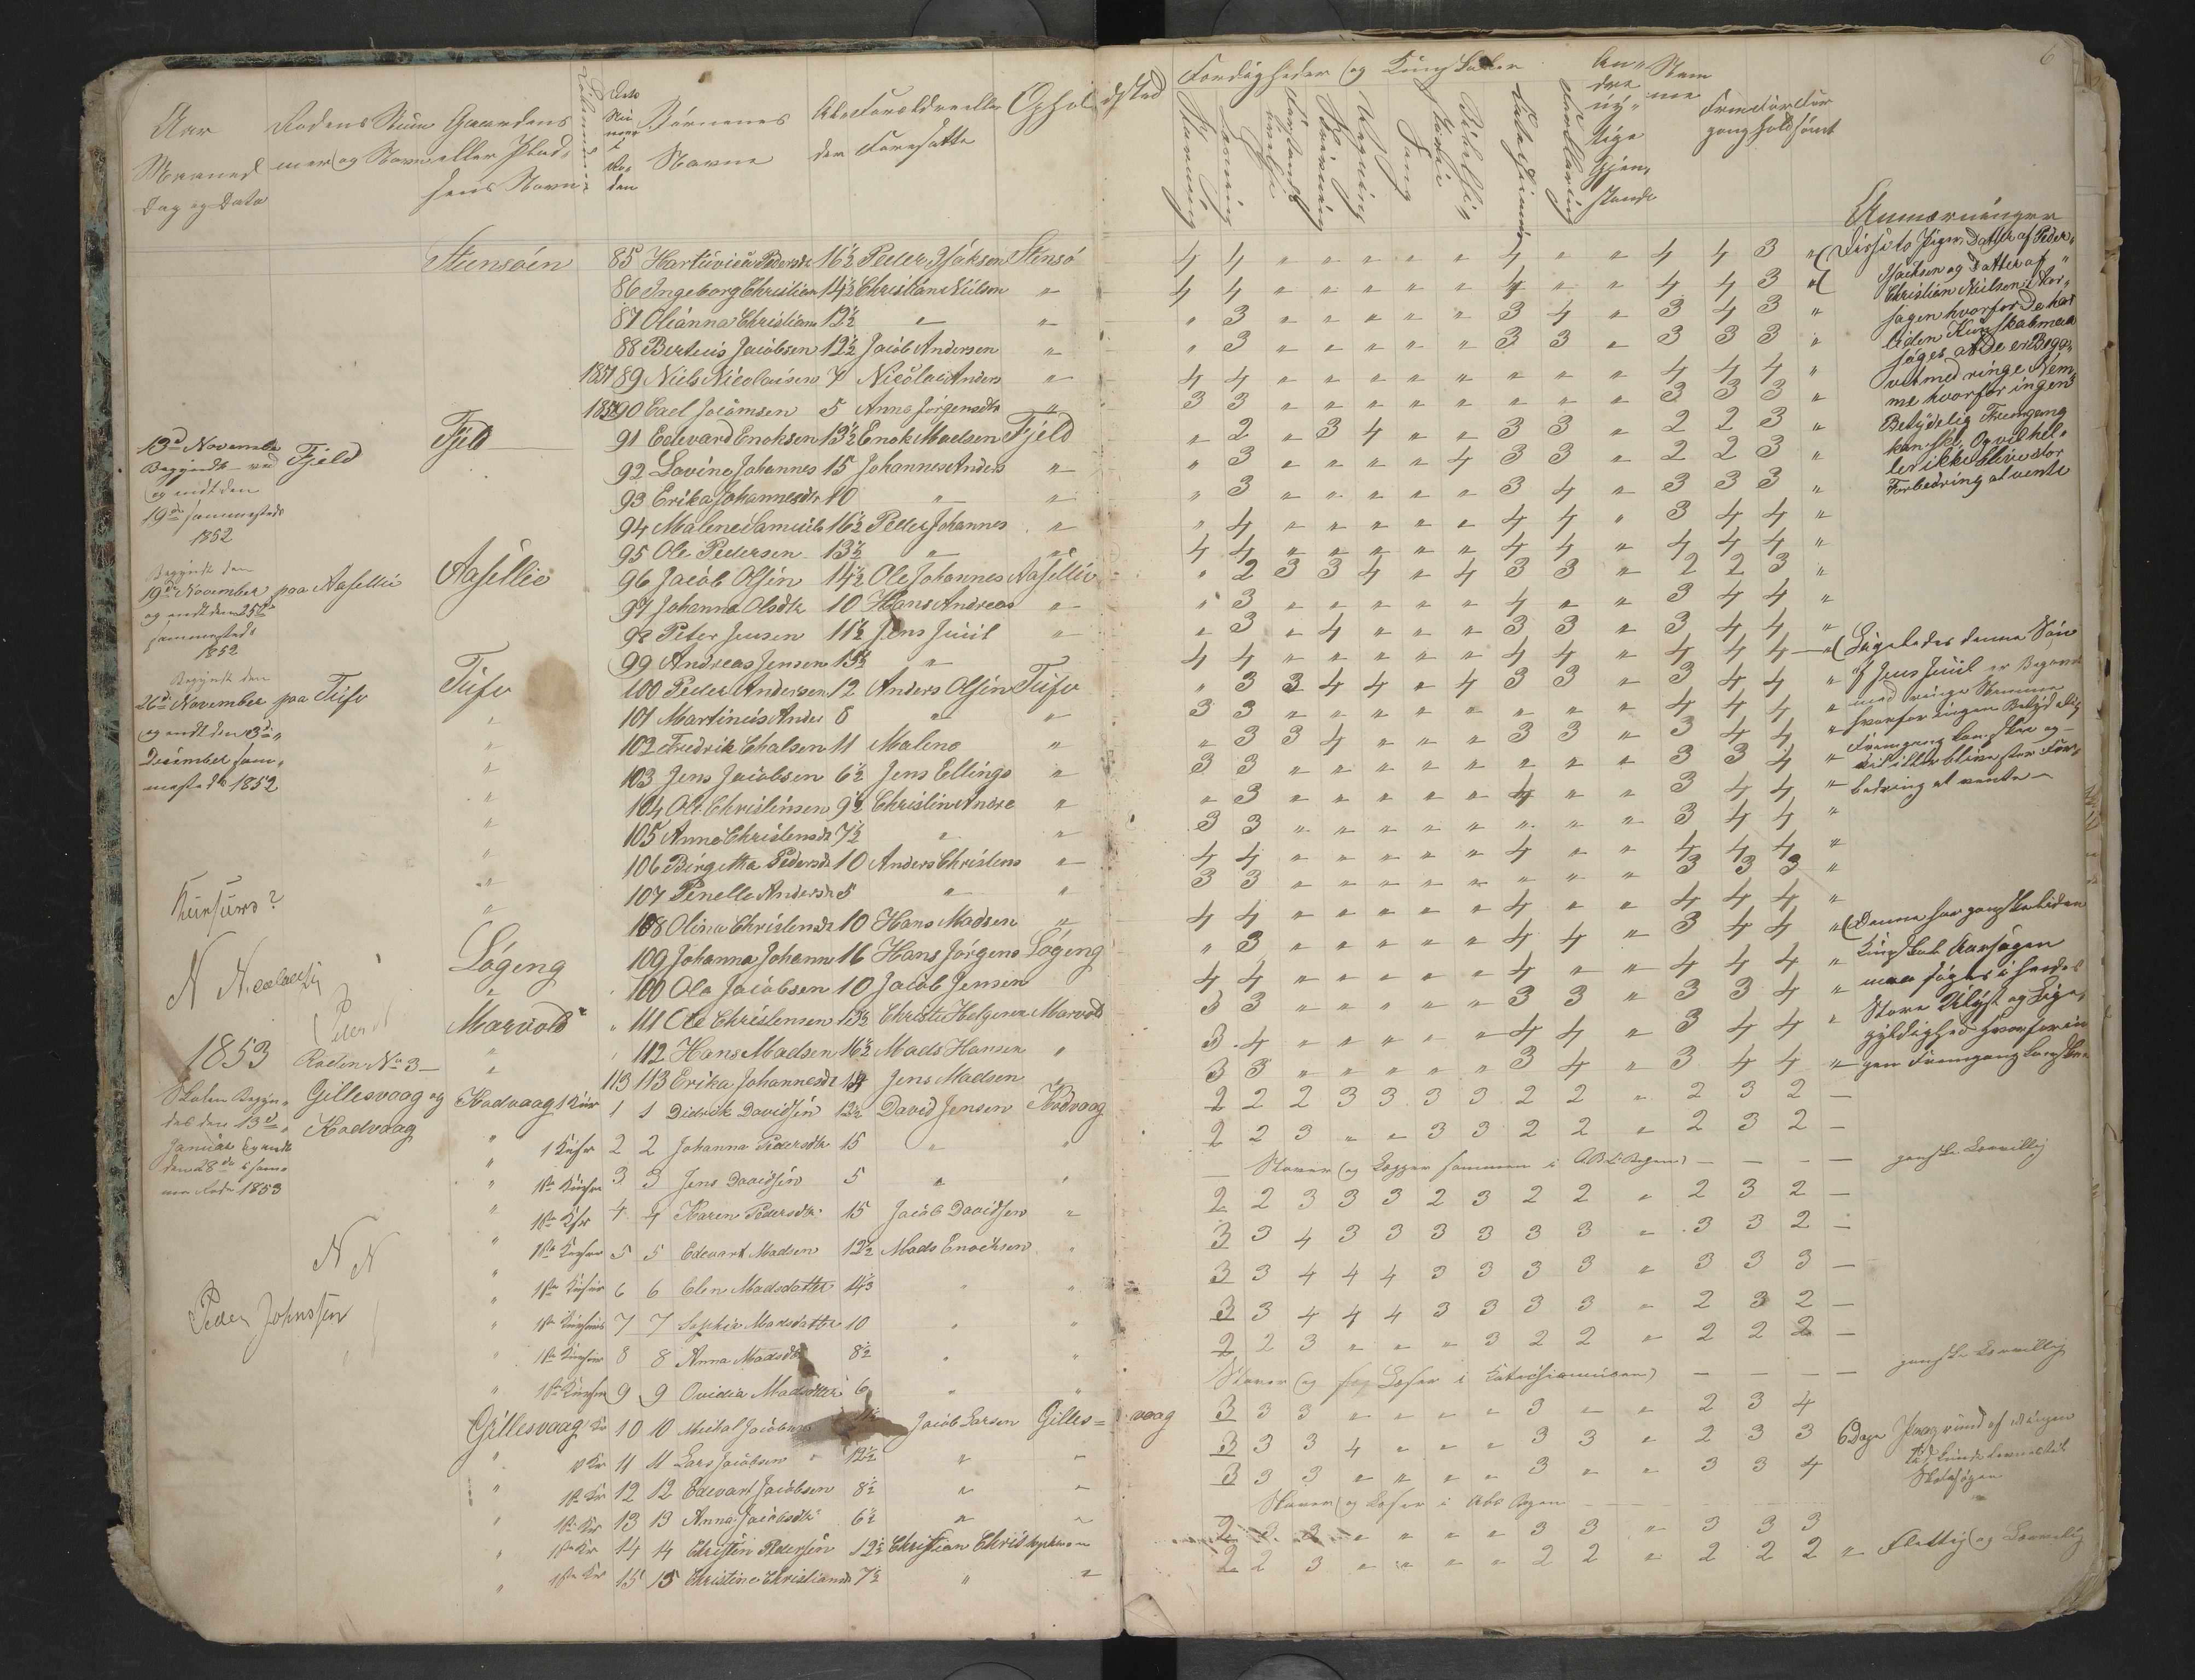 6
Aar Maaned Dag og Data
Rodens Nummer og Navn
Gaardens eller Pladsens Navn
Børnenes Navne
Alder
Forældre eller Foresatte
Opholdsted
Færdigheder og Kundskaber
Stavning
Læsning
Forstandsøvelse
Skrivning
Regning
Sang
Bibelhistorie
Catechismus
Forklaring
Andre nyttige Gjenstande
Nemme
Fremgang
Forhold
Forsømt
Anmærkninger
Steensøen 85 Hartuvica Pedersdtr 16½ Peder Isaksen Stensø 4 4 " " " " " " 4 " " 4 4 3 "
86 Ingeborg Christian 14½ Christian Nielsen " 4 4 " " " " " " 4 " " 4 4 3 "
87 Olianna Christians 12½ " " " 3 " " " " " " 3 4 " 3 4 3 "
88 Berteus Jacobsen 12½ Jacob Andersen " " 3 " " " " " " 3 3 " 3 3 3 "
1851 89 Niels Nicolaisen 7 Nicolai Anders " 4 4 " " " " " " " " " 4 4 4 "
1852 90 Carl Joramsen 5 Anna Jørgensdtr " 3 3 " " " " " " " " " 3 3 3 "
Fjeld 91 Edevard Enoksen 13½ Enok Madsen Fjeld " 2 " 3 4 " " 3 3 " 2 2 3 "
92 Lovine Johannes 15 Johannes Anders " " 3 " " " " 4 3 3 " 2 2 3 "
93 Erika Johannesdtr 10 " " " 3 " " " " " 3 4 " 3 3 3 "
94 Malene Samuels 16½ Peder Johannes " " 4 " " " " " 4 4 " 3 4 4 "
95 Ole Pedersen 13½ " " 4 4 " " " " " 4 4 " 4 4 4 "
Aasellie 96 Jacob Olsen 14½ Ole Johannes Aasellie " 2 3 3 4 " 4 3 3 " 2 2 3 "
97 Johanna Olsdtr 10 Hans Andreas " " 3 " " " " " 4 " " 3 4 4 "
98 Peter Jensen 11½ Jens Juul " " 3 " 4 " " " 3 3 " 3 4 4 "
99 Andreas Jensen 15½ " 4 4 " " " " " 4 4 " 4 4 4 "
Tufv 100 Peder Andersen 12 Anders Olsen Tufv " 3 3 4 4 " 4 3 3 " 3 4 4 "
101 Martinus Ander 8 " " 3 3 " " " " " " " " 4 4 4 "
102 Fredrik Chalsen 11 Malene " " 3 3 4 " " " 3 3 " 3 4 4 "
103 Jens Jacobsen 6½ Jens Ellings " 3 3 " " " " " " " " 3 3 4 "
104 Ole Christensen 9½ Christin Andre " " 3 " " " " " 4 " " 3 4 4 "
105 Anne Christensd 7½ " " 3 3 " " " " " " " " 3 4 4 "
106 Birgetha Pedersd 10 Anders Christens " 4 4 " " " " " 4 " " 4 4 4 "
107 Penelle Andersd 5 " " 3 3 " " " " " " " " 3 3 3 "
108 Olina Christensd 10 Hans Madsen " 4 4 " " " " " 4 " " 4 4 4 "
Løgeng 109 Johanna Johann 16 Hans Jørgens Løgeng " 3 " " " " " 4 4 " 3 4 4 "
" 100 Ole Jacobsen 10 Jacob Jensen 4 4 " " " " " 4 " " 4 4 4 "
Marvold 111 Ole Christensen 13½ Christe Helgesen Marvold 3 3 " " " " " 3 3 " 3 3 4 "
" 112 Hans Madsen 16½ Mads Hansen " 3 4 " " " " " 4 4 " 3 4 4 "
" 113 113 Erika Johannesdt 14 Jens Madsen " 3 3 " " " " " 3 4 " 3 4 4 "
Hadvaag 1 Kur 1 1 Didrik Davidsen 12½ David Jensen Hadvaag 2 2 2 3 3 3 3 2 2 " 2 3 2 —
" 1 Kursr 2 2 Johanna Pedersdtr 15 " " 2 2 3 " " 3 3 2 2 " 2 3 2 —
" 3 3 Jens Davidsen 5 " " Staver og Lægger sammen i ABC Bogen — — — — ganske Lærvillig
" 4 4 Karen Pedersdtr 15 Jacob Davidsen " 2 2 3 3 3 2 3 2 2 " 2 3 2 —
" 5 5 Edevart Madsen 12½ Mads Enochsen " 3 3 4 3 3 3 3 3 3 " 3 3 2 —
" 6 6 Elen Madsdatter " " 3 3 4 4 4 3 3 3 3 " 3 3 3 —
" 7 7 Sophie Madsdatter 10 " " 3 3 4 4 4 3 3 3 3 " 2 3 2 —
" 8 8 Anna Madsdtr 8½ " " 2 2 3 " " " 3 2 2 " 2 2 2 —
" 9 9 Ovidia Madsdtter 6 " " Staver og Læser i Katechismusen — — — — ganske Lærvillig
Gillesvaag 10 10 Mickal Jacobsen Jacob Larsen Gillesvaag 3 3 3 " " " " 3 " " 2 3 4
" 11 11 Lars Jacobsen 12½ " " 3 3 3 4 " " " 3 3 " 2 3 3 6 Dage
" 12 12 Edevart Jacobsen 8½ " " 3 3 3 " " " " 3 " " 3 3 4
" 13 13 Anna Jacobsdtr 6½ " " Staver og Læser i Abc Bogen
" 14 14 Christen Pedersen 12½ Christian Christophersen 2 3 3 " " " " 3 3 " 3 3 3
" 15 15 Christine Christiansd 7½ " " 2 2 3 " " " " 2 2 " 2 2 2 " Flittig og Lærvillig
13de November
Begyndt ved Fjeld
og endt den
19de sammesteds
1852
Begyndt den
19de November paa Aasellie
og endt den 25de
sammesteds
1852
Begyndt den
26de November paa Tufv
og endt den 3de
December sam-
mesteds 1852
Kursuus?
N Nicolaisen
Peder
1853 Roden No 3—
Skolen Begyn- Gillesvaag og
des den 13de Hadvaag
Januar og endt
den 28de i sam-
me Rode 1853
N N
Peder Johnssen
Disse to Piger Datter af Peder
Isacksen og Datter af
Christian Nielsen Aar-
sagen hvorfor De har
liden Kundskab maa
søges at De er Bega-
vet med ringe Nem-
me hvorfor ingen
Betydelig Fremgang
kan ske, Og vil hel-
ler ikke blive stor
Forbedring at vente
Ligeledes denne Søn
af Jens Juul er Begavet
med ringe Nemme
hvorfor ingen Betydelig
Fremgang kan skee og
vil ikke blive stor For-
bedring at vente —
Denne har ganske liden
Kundskab Aarsagen
maa søges i hendes
Store Ulyst og Lige-
gyldighed hvorfor in-
gen Fremgang kan skee